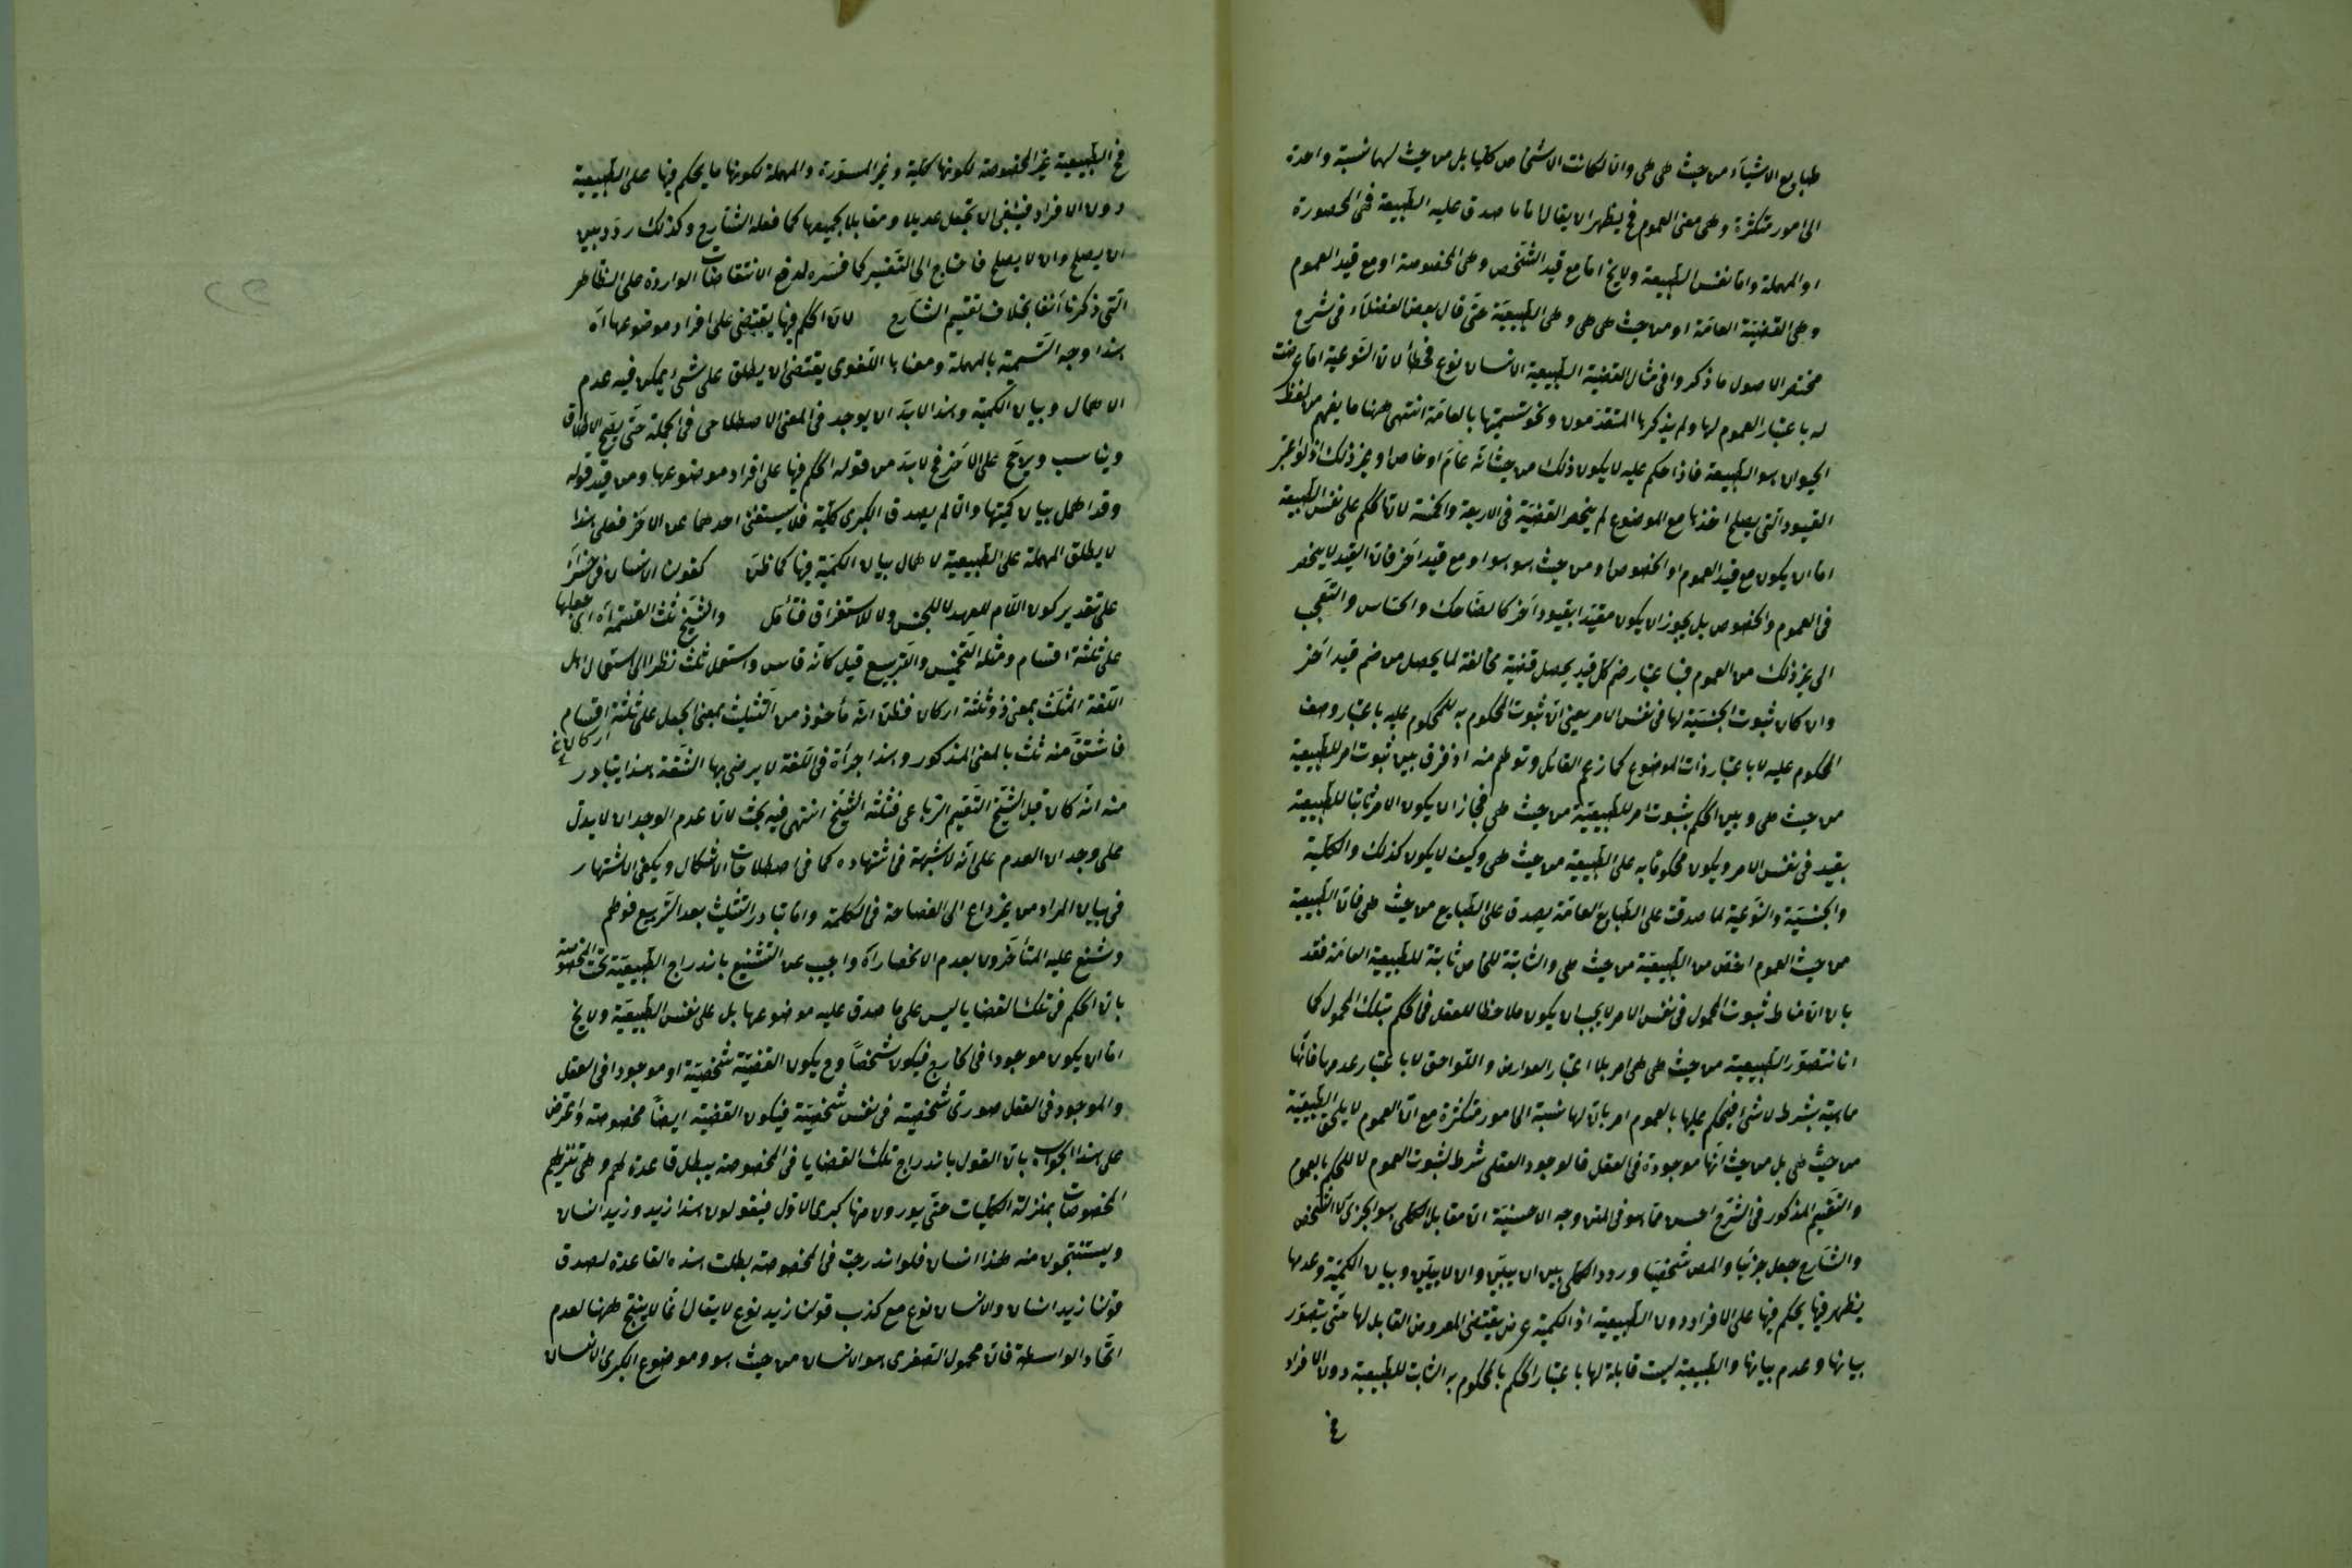 طبايع الاشياء من حيث هي هي والا لكانت الاشخاص كليا بل من حيث لها نسبة واحدة
الى امور متكثرة وهي معنى العموم فح يظهر ان يقال اما ما صدق عليه الطبيعة فهى المحصورة
او المهملة واما نفس الطبيعة ولا يخ اما مع قيد التشخص وهي المخصوصة او مع قيد العموم
وهي القضية العامة او من حيث هي هي وهي الطبيعية حتى قال بعض الفضلاء في شرح
مختصر الاصول ما ذكروا في مثال القضية الطبيعية الانسان نوع فخطأ لان النوعية انما عرضت
له باعتبار العموم لها ولم يذكرها المتقدمون ونحو تسميتها بالعامة انتهى ههنا ما يفهم من لفظ
الحيوان هو الطبيعة فاذا حكم عليه لا يكون ذلك من حيث انه عام او خاص او غير ذلك اذ لو اعتبر
القيود التي يصلح اخذها مع الموضوع لم ينحصر القضية في الاربعة والخمسة لان الحكم على نفس الطبيعة
اما ان يكون مع قيد العموم او الخصوص او من حيث هو هو او مع قيد آخر فان القيد لا ينحصر
في العموم والخصوص بل يجوز ان يكون مقيدا بقيود آخر كالضاحك والحساس والتعجب
الى غير ذلك من العموم فباعتبار ضم كل قيد يحصل قضية مخالفة لما يحصل من ضم قيد آخر
وان كان ثبوت الجنسية لها في نفس الامر يعني ان ثبوت المحكوم به للمحكوم عليه باعتبار وصف
المحكوم عليه لا باعتبار ذات الموضوع كما زعم القائل وتوهم منه اذ فرق بين ثبوت امر للطبيعية
من حيث هي وبين الحكم بثبوت امر للطبيعية من حيث هي فجاز ان يكون الامر ثابتا للطبيعية
بقيد في نفس الامر ويكون محكوما به على الطبيعية من حيث هي وكيف لا يكون كذلك والكلية
والجنسية والنوعية لما صدقت على الطبايع العامة يصدق على الطبايع من حيث هي فان الطبيعية
من حيث العموم اخص من الطبيعية من حيث هي والثابتة للخاص ثابتة للطبيعية العامة فقد
بان ان مناط ثبوت المحمول في نفس الامر لا يجب ان يكون ملاحظا للعقل في الحكم بتلك المحمول كما
انا نتصور الطبيعية من حيث هي هي امر بلا اعتبار العوارض واللواحق لا باعتبار عدمها فانها
ماهية بشرط لا شئ فيحكم عليها بالعموم امر بان لها نسبة الى امور متكثرة مع ان العموم لا يلحق الطبيعية
من حيث هي بل من حيث انها موجودة في العقل فالوجود العقلي شرط لثبوت العموم لا للحكم بالعموم
والتقسيم المذكور في الشرح احسن مما هو في المتن وجه الاحسنية ان مقابل الكلي هو الجزئي لا الشخص
والشارح جعل جزئيا والمص شخصيا وردد الكلي بين ان يبين وان لا يبين وبيان الكمية وعدمها
يظهر فيما يحكم فيها على الافراد دون الطبيعية اذ الكمية عرض يقتضي المعروض القابل لها حتى يتصور
بيانها وعدم بيانها والطبيعية ليست قابلة لها باعتبار الحكم بالمحكوم به الثابت للطبيعية دون الافراد
فح
فح الطبيعية غير المخصوصة لكونها كلية وغير المسورة والمهملة لكونها ما يحكم فيها على الطبيعية
دون الافراد فينبغي ان يجعل عديلا ومقابلا لجميعها كما فعله الشارح وكذلك ردد بين
ان يصلح وان لا يصلح فاحتاج الى التفسير كما فسره لدفع الانتقاضات الواردة على الظاهر
التي ذكرنا آنفا بخلاف تقسيم الشارح لان الحكم فيها يقتضي على افراد موضوعها اه
هذا وجه التسمية بالمهملة ومعناها اللغوى يقتضي ان يطلق على شئ يمكن فيه عدم
الاهمال وبيان الكمية وهذا لابد ان يوجد في المعنى الاصطلاحى في الجملة حتى يصح الاطلاق
ويناسب ويرجح على الآخر فح لابد من قوله الحكم فيها على افراد موضوعها ومن قيد قوله
وقد اهمل بيان كميتها وان لم يصدق الكبرى كلية فلا يستغنى احدهما عن الآخر فعلى هذا
لا يطلق المهملة على الطبيعية لاهمال بيان الكمية فيها كما ظن كقولنا الانسان في خسر
على تقدير كون اللام للعهد لا للجنس ولا للاستغراق فتأمل والشيخ ثلث القسمة اه اى جعلها
على ثلثة اقسام ومثله التخميس والتربيع قيل كانه قاس واستعمل ثلث نظرا الى استعمال اهل
اللغة المثلث بمعنى ذو ثلثة اركان فظن انه مأخوذ من التثليث بمعنى الجعل على ثلثة اقسام
اركان خ
فاشتق منه ثلث بالمعنى المذكور وهذا جرأة في اللغة لا يرضى بها الثقة هذا يتبادر
منه انه كان قبل الشيخ التقسيم الرباعى فثلثه الشيخ انتهى فيه بحث لان عدم الوجدان لا يدل
على وجدان العدم على انه لا شبهة في اشتهاره كما في اصطلاحات الاشكال ويكفى الاشتهار
في بيان المراد من غير داع الى الفصاحة في الكلمة واما تبادر التثليث بعد التربيع فوهم
وشنع عليه المتأخرون بعدم الانحصار اه واجيب عن التشنيع باندراج الطبيعية تحت المخصوصة
بان الحكم في تلك القضايا ليس على ما صدق عليه موضوعها بل على نفس الطبيعية ولا يخ
اما ان يكون موجودا في الخارج فيكون شخصا وح يكون القضية شخصية او موجودا في العقل
والموجود في العقل صورتى شخصية في نفس شخصية فيكون القضية ايضا مخصوصة واعترض
على هذا الجواب بان القول باندراج تلك القضايا في المخصوصة يبطل قاعدة لهم وهي تنزيلهم
المخصوصات بمنزلة الكليات حتى يوردون منها كبرى الاول فيقولون هذا زيد وزيد انسان
ويستنتجون منه هذا انسان فلو اندرجت في المخصوصة بطلت هذه القاعدة لصدق
قولنا زيد انسان والانسان نوع مع كذب قولنا زيد نوع لا يقال انما لا ينتج ههنا لعدم
اتحاد الواسطة فان محمول الصغرى هو الانسان من حيث هو وموضوع الكبرى الانسان